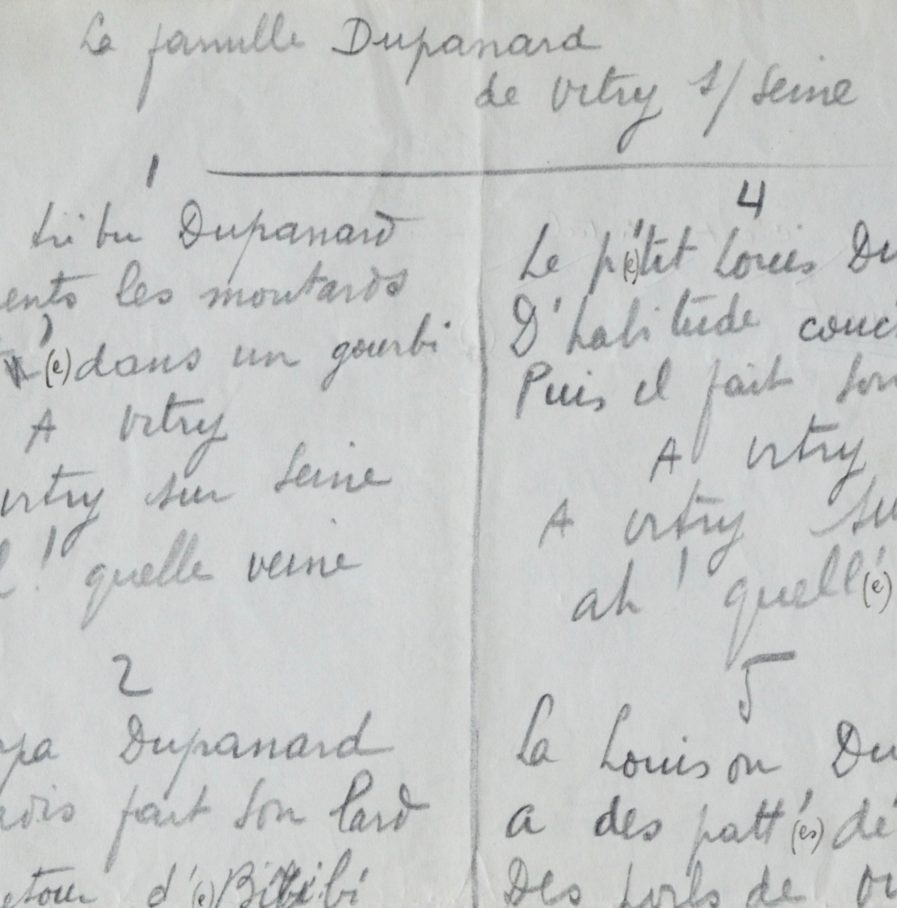 La famille Dupanard
de Vitry s/ Seine
1
tribu Dupanard
ents les moutards
(e) dans un gourbi
A Vitry
Vitry sur Seine
! quelle veine
2
apa Dupanard
adis fait son lard
etour d'(e) Biribi
4
Le p'(e)tit Louis Du
D'habitude couc
Puis il fait son
A Vitry
A Vitry su
ah ! quell'(e)
5
La Louison Du
a des patt'(es) de
Des poils de